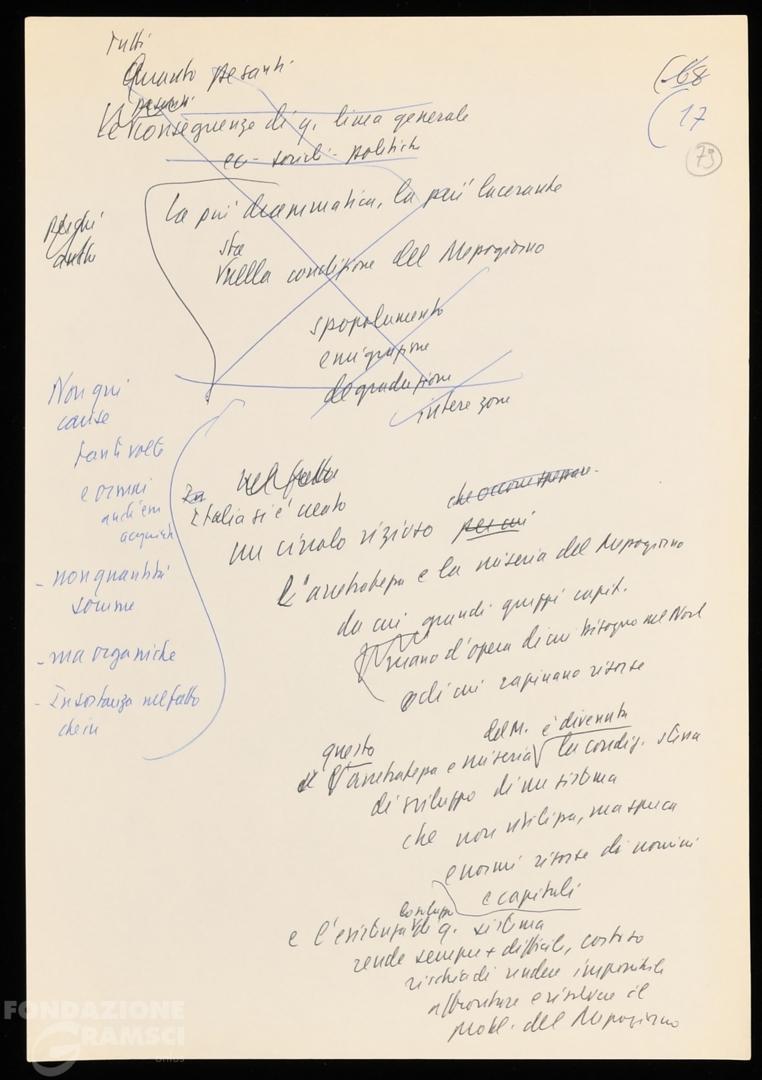 Tutti
Quanto pesanti
pesanti
Le conseguenze di q. linea generale
ec - sociali - politiche
(68
(17
73
La più drammatica, la più lacerante
sta
nella condizione del Mezzogiorno
spopolamento
emigrazione
degradazione
intere zone
Non qui
cause
tante volte
e ormai
anch'em
acquisite
- non quantità
somme
- ma organiche
- In sostanza nel fatto
che in
In nel fatto
Italia si è creato
che occorre spezzare
un circolo vizioso per cui
L'arretratezza e la miseria del Mezzogiorno
da cui grandi gruppi capit.
mano d'opera di cui bisogno nel Nord
e di cui rapinano risorse
questo del M. è divenuta
l'arretratezza e miseria la condiz. stessa
di sviluppo di un sistema
che non utilizza, ma spreca
enormi risorse di uomini
e capitali
lo sviluppo
e l'esistenza di q. sistema
rende sempre + difficile, costoso
rischia di rendere impossibile
affrontare e risolvere il
probl. del Mezzogiorno
FONDAZIONE
GRAMSCI
onlus